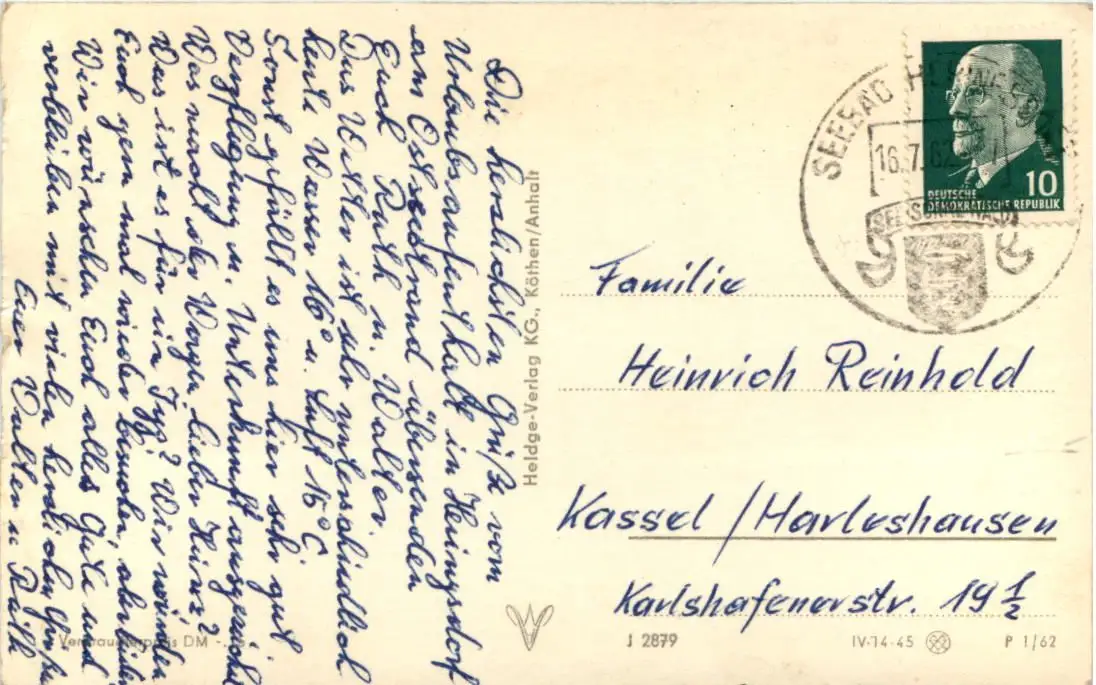 Die herzlichsten Grüße vom
Urlaubsaufenthalt in Heringsdorf
am Ostseestrand übersenden
Euch Ruth u. Walter.
Das Wetter ist sehr unterschiedlich
heute Wasser 16° u. Luft 16° C
Sonst gefällt es uns hier sehr gut
Verpflegung u. Unterkunft ausgezeichnet
Was macht der Wagen lieber Heinz?
Was ist es für ein Typ? Wir würden
Euch gern mal wieder besuchen, aber
Wir wünschen Euch alles Gute und
verbleiben mit vielen herzlichen Grüßen
Euer Walter u. Ruth
Heldge-Verlag KG., Köthen/Anhalt
SEEBAD HERINGSDORF
16.7.62
DEUTSCHE
DEMOKRATISCHE REPUBLIK
10
Familie
Heinrich Reinhold
Kassel / Harleshausen
Karlshafenerstr. 19 1/2
Verbraucherpreis DM
J 2879
IV-14-45
P 1/62